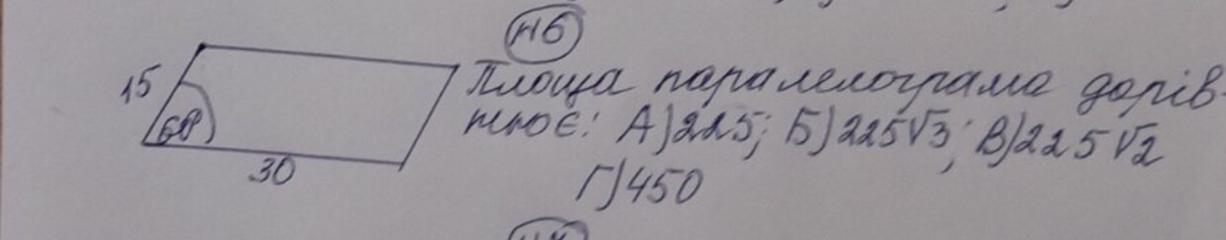 №6
15
60°
30
Площа паралелограма дорів-
нює: А) 225; Б) 225√3; В) 225√2
Г) 450